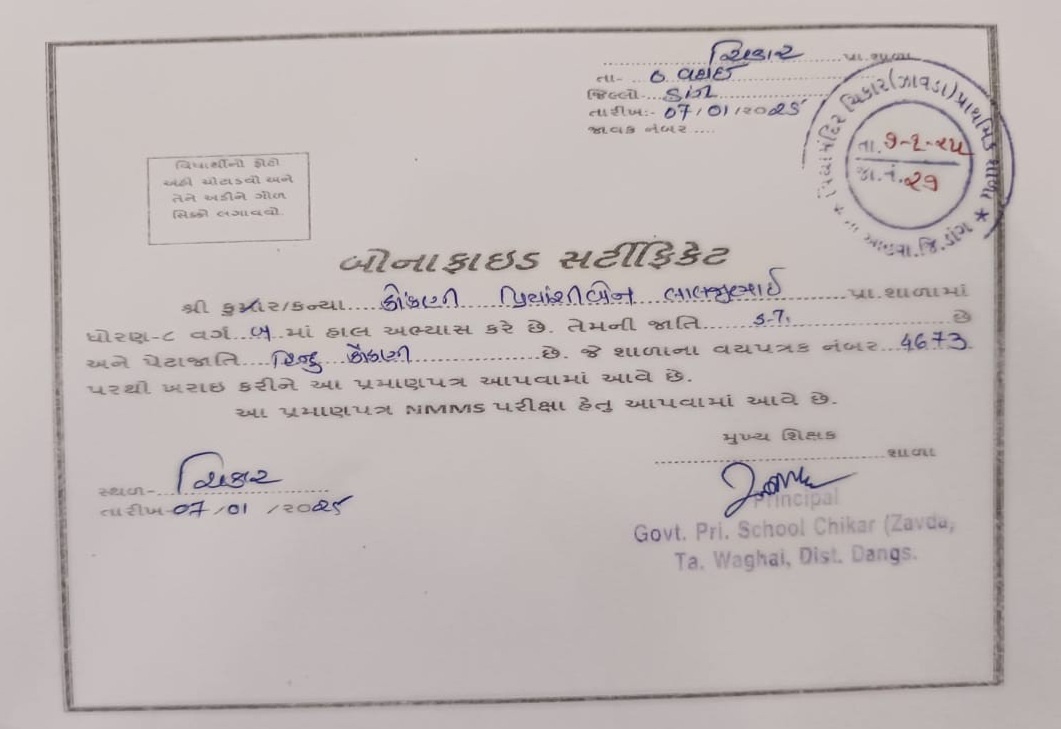 ચિકાર પ્રા.શાળા
તા- વઘઈ
જિલ્લો- ડાંગ
તારીખઃ- 07/01/2025
જાવક નંબર ....
વિદ્યામંદિર ચિકાર(ઝાવડા)પ્રાથમિક શાળા
તા. 7-1-25
જા.નં. 29
જિ.ડાંગ
વિદ્યાર્થીનો ફોટો
અહી ચોટાડવો અને
તેને અડીને ગોળ
સિક્કો લગાવવો.
બોનાફાઇડ સર્ટીફિકેટ
શ્રી કુમાર/કન્યા કોંકણી પ્રિયાંશીબેન લાલજીભાઈ પ્રા.શાળામાં
ધોરણ-૮ વર્ગ બ માં હાલ અભ્યાસ કરે છે. તેમની જાતિ છે
અને પેટાજાતિ હિન્દુ કોંકણી છે. જે શાળાના વયપત્રક નંબર 4673
પરથી ખરાઇ કરીને આ પ્રમાણપત્ર આપવામાં આવે છે.
આ પ્રમાણપત્ર NMMS પરીક્ષા હેતુ આપવામાં આવે છે.
મુખ્ય શિક્ષક
શાળા
સ્થળ- ચિકાર
તારીખ-07/01/2025
Principal
Govt. Pri. School Chikar (Zavda,
Ta. Waghai, Dist. Dangs.